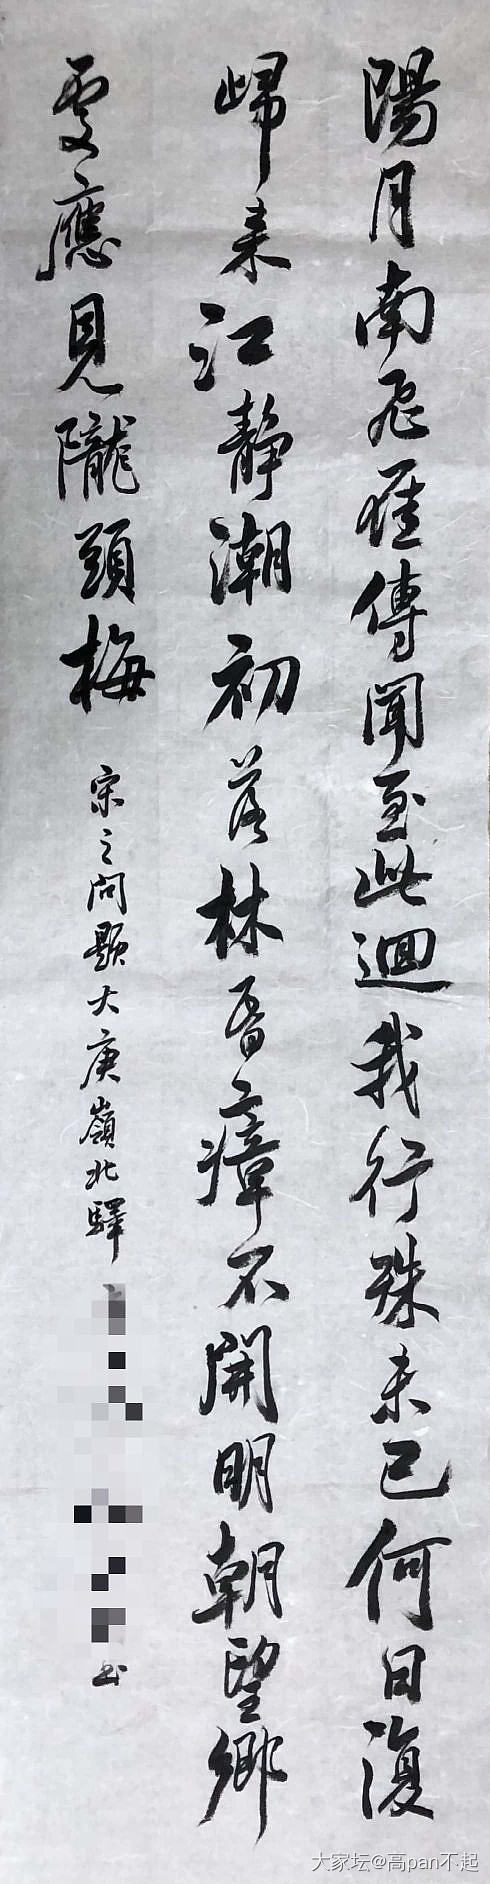 陽月南飛雁傳聞至此迴我行殊未已何日復
歸来江靜潮初落林昏瘴不開明朝望鄉
處應見隴頭梅
宋之問題大庾嶺北驛
书
大家坛@高pan不起